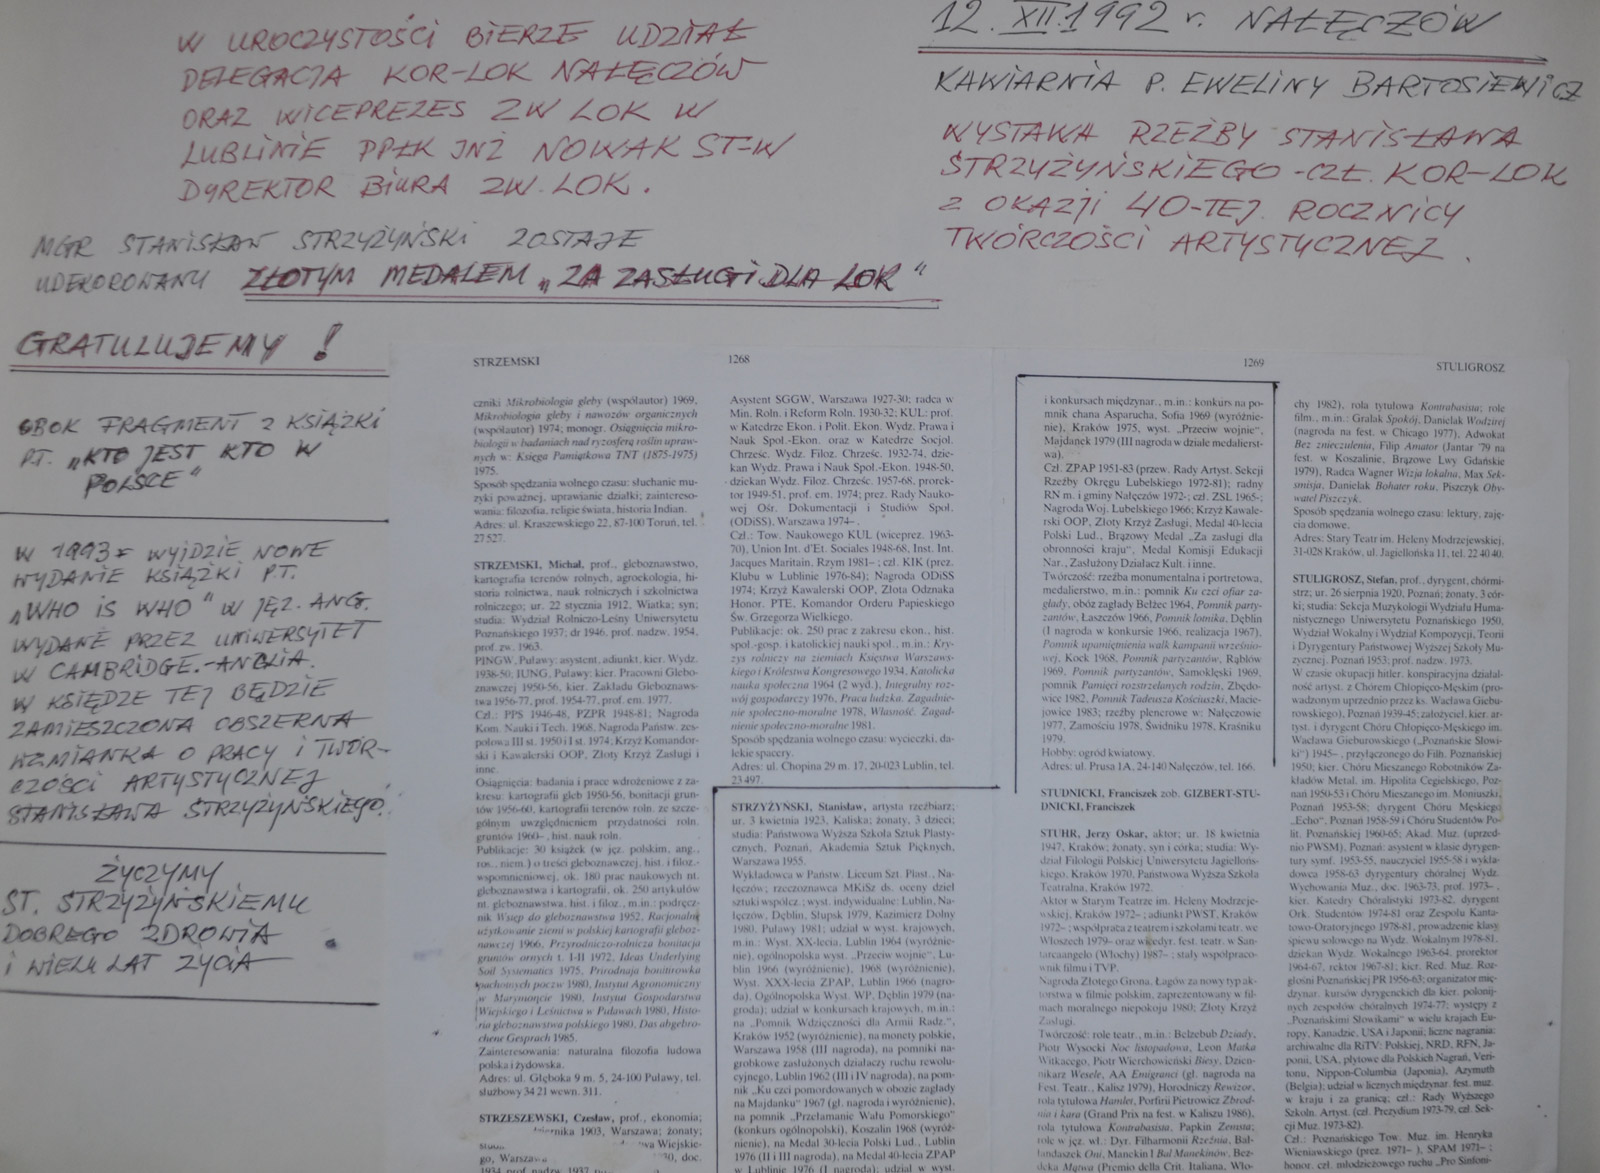 W UROCZYSTOŚCI BIERZE UDZIAŁ
DELEGACJA KOR-LOK NAŁĘCZÓW
ORAZ WICEPREZES ZW LOK W
LUBLINIE PPŁK INŻ NOWAK ST-W
DYREKTOR BIURA ZW. LOK.
MGR STANISŁAW STRZYŻYŃSKI ZOSTAJE
UDEKOROWANY ZŁOTYM MEDALEM „ZA ZASŁUGI DLA LOK"
GRATULUJEMY !
12.XII.1992 r. NAŁĘCZÓW
KAWIARNIA P. EWELINY BARTOSIEWICZ
WYSTAWA RZEŹBY STANISŁAWA
STRZYŻYŃSKIEGO -CZŁ. KOR-LOK
Z OKAZJI 40-TEJ ROCZNICY
TWÓRCZOŚCI ARTYSTYCZNEJ.
OBOK FRAGMENT Z KSIĄŻKI
P.T. „KTO JEST KTO W
POLSCE"
W 1993 r WYJDZIE NOWE
WYDANIE KSIĄŻKI P.T.
„WHO IS WHO" W JĘZ. ANG.
WYDANE PRZEZ UNIWERSYTET
W CAMBRIDGE.-ANGLIA.
W KSIĘDZE TEJ BĘDZIE
ZAMIESZCZONA OBSZERNA
WZMIANKA O PRACY I TWÓR-
CZOŚCI ARTYSTYCZNEJ
STANISŁAWA STRZYŻYŃSKIEGO.
ŻYCZYMY
ST. STRZYŻYŃSKIEMU
DOBREGO ZDROWIA
I WIELU LAT ŻYCIA
STRZEMSKI
1268
czniki Mikrobiologia gleby (współautor) 1969,
Mikrobiologia gleby i nawozów organicznych
(współautor) 1974; monogr. Osiągnięcia mikro-
biologii w badaniach nad ryzosferą roślin upraw-
nych w: Księga Pamiątkowa TNT (1875-1975)
1975.
Sposób spędzania wolnego czasu: słuchanie mu-
zyki poważnej, uprawianie działki; zaintereso-
wania: filozofia, religie świata, historia Indian.
Adres: ul. Kraszewskiego 22, 87-100 Toruń, tel.
27 527.
STRZEMSKI, Michał, prof., gleboznawstwo,
kartografia terenów rolnych, agroekologia, hi-
storia rolnictwa, nauk rolniczych i szkolnictwa
rolniczego; ur. 22 stycznia 1912, Wiatka; syn;
studia: Wydział Rolniczo-Leśny Uniwersytetu
Poznańskiego 1937; dr 1946, prof. nadzw. 1954,
prof. zw. 1963.
PINGW, Puławy: asystent, adiunkt, kier. Wydz.
1938-50, IUNG, Puławy: kier. Pracowni Glebo-
znawczej 1950-56, kier. Zakładu Gleboznaws-
twa 1956-77, prof. 1954-77, prof. em. 1977.
Czł.: PPS 1946-48, PZPR 1948-81; Nagroda
Kom. Nauki i Tech. 1968, Nagroda Państw. zes-
połowa III st. 1950 i I st. 1974; Krzyż Komandor-
ski i Kawalerski OOP, Złoty Krzyż Zasługi i
inne.
Osiągnięcia: badania i prace wdrożeniowe z za-
kresu: kartografii gleb 1950-56, bonitacji grun-
tów 1956-60, kartografii terenów roln. ze szcze-
gólnym uwzględnieniem przydatności roln.
gruntów 1960-, hist. nauk roln.
Publikacje: 30 książek (w jęz. polskim, ang.,
ros., niem.) o treści gleboznawczej, hist. i filoz.-
wspomnieniowej, ok. 180 prac naukowych nt.
gleboznawstwa i kartografii, ok. 250 artykułów
nt. gleboznawstwa, hist. i filoz., m.in.: podręcz-
nik Wstęp do gleboznawstwa 1952, Racjonalne
użytkowanie ziemi w polskiej kartografii glebo-
znawczej 1966, Przyrodniczo-rolnicza bonitacja
gruntów ornych t. I-II 1972, Ideas Underlying
Soil Systematics 1975, Prirodnaja bonitirowka
pachotnych poczw 1980, Instytut Agronomiczny
w Marymoncie 1980, Instytut Gospodarstwa
Wiejskiego i Leśnictwa w Puławach 1980, Histo-
ria gleboznawstwa polskiego 1980, Das abgebro-
chene Gespräch 1985.
Zainteresowania: naturalna filozofia ludowa
polska i żydowska.
Adres: ul. Głęboka 9 m. 5, 24-100 Puławy, tel.
służbowy 34 21 wewn. 311.
STRZESZEWSKI, Czesław, prof., ekonomia;
1903, Warszawa; żonaty;
Asystent SGGW, Warszawa 1927-30; radca w
Min. Roln. i Reform Roln. 1930-32; KUL: prof.
w Katedrze Ekon. i Polit. Ekon. Wydz. Prawa i
Nauk Społ.-Ekon. oraz w Katedrze Socjol.
Chrześc. Wydz. Filoz. Chrześc. 1932-74, dzie-
kan Wydz. Prawa i Nauk Społ.-Ekon. 1948-50,
dziekan Wydz. Filoz. Chrześc. 1957-68, prorek-
tor 1949-51, prof. em. 1974; prez. Rady Nauko-
wej Ośr. Dokumentacji i Studiów Społ.
(ODiSS), Warszawa 1974-.
Czł.: Tow. Naukowego KUL (wiceprez. 1963-
70), Union Int. d'Et. Sociales 1948-68, Inst. Int.
Jacques Maritain, Rzym 1981-; czł. KIK (prez.
Klubu w Lublinie 1976-84); Nagroda ODiSS
1974; Krzyż Kawalerski OOP, Złota Odznaka
Honor. PTE, Komandor Orderu Papieskiego
Św. Grzegorza Wielkiego.
Publikacje: ok. 250 prac z zakresu ekon., hist.
społ.-gosp. i katolickiej nauki społ., m.in.: Kry-
zys rolniczy na ziemiach Księstwa Warszaws-
kiego i Królestwa Kongresowego 1934, Katolicka
nauka społeczna 1964 (2 wyd.), Integralny roz-
wój gospodarczy 1976, Praca ludzka. Zagadnie-
nie społeczno-moralne 1978, Własność. Zagad-
nienie społeczno-moralne 1981.
Sposób spędzania wolnego czasu: wycieczki, da-
lekie spacery.
Adres: ul. Chopina 29 m. 17, 20-023 Lublin, tel.
23 497.
STRZYŻYŃSKI, Stanisław, artysta rzeźbiarz;
ur. 3 kwietnia 1923, Kaliska; żonaty, 3 dzieci;
studia: Państwowa Wyższa Szkoła Sztuk Plasty-
cznych, Poznań, Akademia Sztuk Pięknych,
Warszawa 1955.
Wykładowca w Państw. Liceum Szt. Plast., Na-
łęczów; rzeczoznawca MKiSz ds. oceny dzieł
sztuki współcz.; wyst. indywidualne: Lublin, Na-
łęczów, Dęblin, Słupsk 1979, Kazimierz Dolny
1980, Puławy 1981; udział w wyst. krajowych,
m.in.: Wyst. XX-lecia, Lublin 1964 (wyróżnie-
nie), ogólnopolska wyst. „Przeciw wojnie", Lu-
blin 1966 (wyróżnienie), 1968 (wyróżnienie),
Wyst. XXX-lecia ZPAP, Lublin 1966 (nagro-
da), Ogólnopolska Wyst. WP, Dęblin 1979 (na-
groda); udział w konkursach krajowych, m.in.:
na „Pomnik Wdzięczności dla Armii Radz.",
Kraków 1952 (wyróżnienie), na monety polskie,
Warszawa 1958 (III nagroda), na pomniki na-
grobkowe zasłużonych działaczy ruchu rewolu-
cyjnego, Lublin 1962 (III i IV nagroda), na pom-
nik „Ku czci pomordowanych w obozie zagłady
na Majdanku" 1967 (gł. nagroda i wyróżnienie),
na pomnik „Przełamanie Wału Pomorskiego"
(konkurs ogólnopolski), Koszalin 1968 (wyróż-
nienie), na Medal 30-lecia Polski Lud., Lublin
1976 (II i III nagroda), na Medal 40-lecia ZPAP
w Lublinie 1976 (I nagroda); udział w wyst.
1269
STULIGROSZ
i konkursach międzynar., m.in.: konkurs na po-
mnik chana Asparucha, Sofia 1969 (wyróżnie-
nie), Kraków 1975, wyst. „Przeciw wojnie",
Majdanek 1979 (III nagroda w dziale medalierst-
wa).
Czł. ZPAP 1951-83 (przew. Rady Artyst. Sekcji
Rzeźby Okręgu Lubelskiego 1972-81); radny
RN m. i gminy Nałęczów 1972-; czł. ZSL 1965-;
Nagroda Woj. Lubelskiego 1966; Krzyż Kawale-
rski OOP, Złoty Krzyż Zasługi, Medal 40-lecia
Polski Lud., Brązowy Medal „Za zasługi dla
obronności kraju", Medal Komisji Edukacji
Nar., Zasłużony Działacz Kult. i inne.
Twórczość: rzeźba monumentalna i portretowa,
medalierstwo, m.in.: pomnik Ku czci ofiar za-
głady, obóz zagłady Bełżec 1964, Pomnik party-
zantów, Łaszczów 1966, Pomnik lotnika, Dęblin
(I nagroda w konkursie 1966, realizacja 1967),
Pomnik upamiętnienia walk kampanii wrześnio-
wej, Kock 1968, Pomnik partyzantów, Rąblów
1969, Pomnik partyzantów, Samoklęski 1969,
pomnik Pamięci rozstrzelanych rodzin, Zbędo-
wice 1982, Pomnik Tadeusza Kościuszki, Macie-
jowice 1983; rzeźby plenerowe w: Nałęczowie
1977, Zamościu 1978, Świdniku 1978, Kraśniku
1979.
Hobby: ogród kwiatowy.
Adres: ul. Prusa 1A, 24-140 Nałęczów, tel. 166.
STUDNICKI, Franciszek zob. GIZBERT-STU-
DNICKI, Franciszek
STUHR, Jerzy Oskar, aktor; ur. 18 kwietnia
1947, Kraków; żonaty, syn i córka; studia: Wy-
dział Filologii Polskiej Uniwersytetu Jagielloń-
skiego, Kraków 1970, Państwowa Wyższa Szkoła
Teatralna, Kraków 1972.
Aktor w Starym Teatrze im. Heleny Modrzeje-
wskiej, Kraków 1972-; adiunkt PWST, Kraków
1972-; współpraca z teatrem i szkołami teatr. we
Włoszech 1979- oraz wicedyr. fest. teatr. w San-
tarcangelo (Włochy) 1987-; stały współpraco-
wnik filmu i TVP.
Nagroda Złotego Grona, Łagów za nowy typ ak-
torstwa w filmie polskim, zaprezentowany w fil-
mach moralnego niepokoju 1980; Złoty Krzyż
Zasługi.
Twórczość: role teatr., m.in.: Belzebub Dziady,
Piotr Wysocki Noc listopadowa, Leon Matka
Witkacego, Piotr Wierchowieński Biesy, Dzien-
nikarz Wesele, AA Emigranci (gł. nagroda na
Fest. Teatr., Kalisz 1979), Horodniczy Rewizor,
rola tytułowa Hamlet, Porfirii Pietrowicz Zbrod-
nia i kara (Grand Prix na fest. w Kaliszu 1986),
rola tytułowa Kontrabasista, Papkin Zemsta;
role w jęz. wł.: Dyr. Filharmonii Rzeźnia, Bal-
landaszek Oni, Manekin I Bal Manekinów, Bez-
deka Mątwa (Premio della Crit. Italiana, Wło-
chy 1982), rola tytułowa Kontrabasista; role
film., m.in.: Grałak Spokój, Danielak Wodzirej
(nagroda na fest. w Chicago 1977), Adwokat
Bez znieczulenia, Filip Amator (Jantar '79 na
fest. w Koszalinie, Brązowe Lwy Gdańskie
1979), Radca Wagner Wizja lokalna, Max Sek-
smisja, Danielak Bohater roku, Piszczyk Oby-
watel Piszczyk.
Sposób spędzania wolnego czasu: lektury, zaję-
cia domowe.
Adres: Stary Teatr im. Heleny Modrzejewskiej,
31-028 Kraków, ul. Jagiellońska 11, tel. 22 40 40.
STULIGROSZ, Stefan, prof., dyrygent, chórmi-
strz; ur. 26 sierpnia 1920, Poznań; żonaty, 3 cór-
ki; studia: Sekcja Muzykologii Wydziału Huma-
nistycznego Uniwersytetu Poznańskiego 1950,
Wydział Wokalny i Wydział Kompozycji, Teorii
i Dyrygentury Państwowej Wyższej Szkoły Mu-
zycznej, Poznań 1953; prof. nadzw. 1973.
W czasie okupacji hitler. konspiracyjna działal-
ność artyst. z Chórem Chłopięco-Męskim (pro-
wadzonym uprzednio przez ks. Wacława Giebu-
rowskiego), Poznań 1939-45; założyciel, kier. ar-
tyst. i dyrygent Chóru Chłopięco-Męskiego im.
Wacława Gieburowskiego („Poznańskie Słowi-
ki") 1945-, przyłączonego do Filh. Poznańskiej
1950; kier. Chóru Mieszanego Robotników Za-
kładów Metal. im. Hipolita Cegielskiego, Poz-
nań 1950-53 i Chóru Mieszanego im. Moniuszki,
Poznań 1953-58; dyrygent Chóru Męskiego
„Echo", Poznań 1958-59 i Chóru Studentów Po-
lit. Poznańskiej 1960-65; Akad. Muz. (uprzed-
nio PWSM), Poznań: asystent w klasie dyrygen-
tury symf. 1953-55, nauczyciel 1955-58 i wykła-
dowca 1958-63 dyrygentury chóralnej Wydz.
Wychowania Muz., doc. 1963-73, prof. 1973-,
kier. Katedry Chóralistyki 1973-82, dyrygent
Ork. Studentów 1974-81 oraz Zespołu Kanta-
towo-Oratoryjnego 1978-81, prowadzenie klasy
śpiewu solowego na Wydz. Wokalnym 1978-81,
dziekan Wydz. Wokalnego 1963-64, prorektor
1964-67, rektor 1967-81; kier. Red. Muz. Roz-
głośni Poznańskiej PR 1956-63; organizator mię-
dzynar. kursów dyrygenckich dla kier. polonij-
nych zespołów chóralnych 1974-77; występy z
„Poznańskimi Słowikami" w wielu krajach Eu-
ropy, Kanadzie, USA i Japonii; liczne nagrania:
archiwalne dla RiTV: Polskiej, NRD, RFN, Ja-
ponii, USA, płytowe dla Polskich Nagrań, Veri-
tonu, Nippon-Columbia (Japonia), Azymuth
(Belgia); udział w licznych międzynar. fest. muz.
w kraju i za granicą; czł.: Rady Wyższego
Szkoln. Artyst. (czł. Prezydium 1973-79, czł. Sek-
cji Muz. 1973-82).
Czł.: Poznańskiego Tow. Muz. im. Henryka
Wieniawskiego (prez. 1971- ), SPAM 1971- ;
honor. czł. młodzieżowego ruchu „Pro Sinfoni-